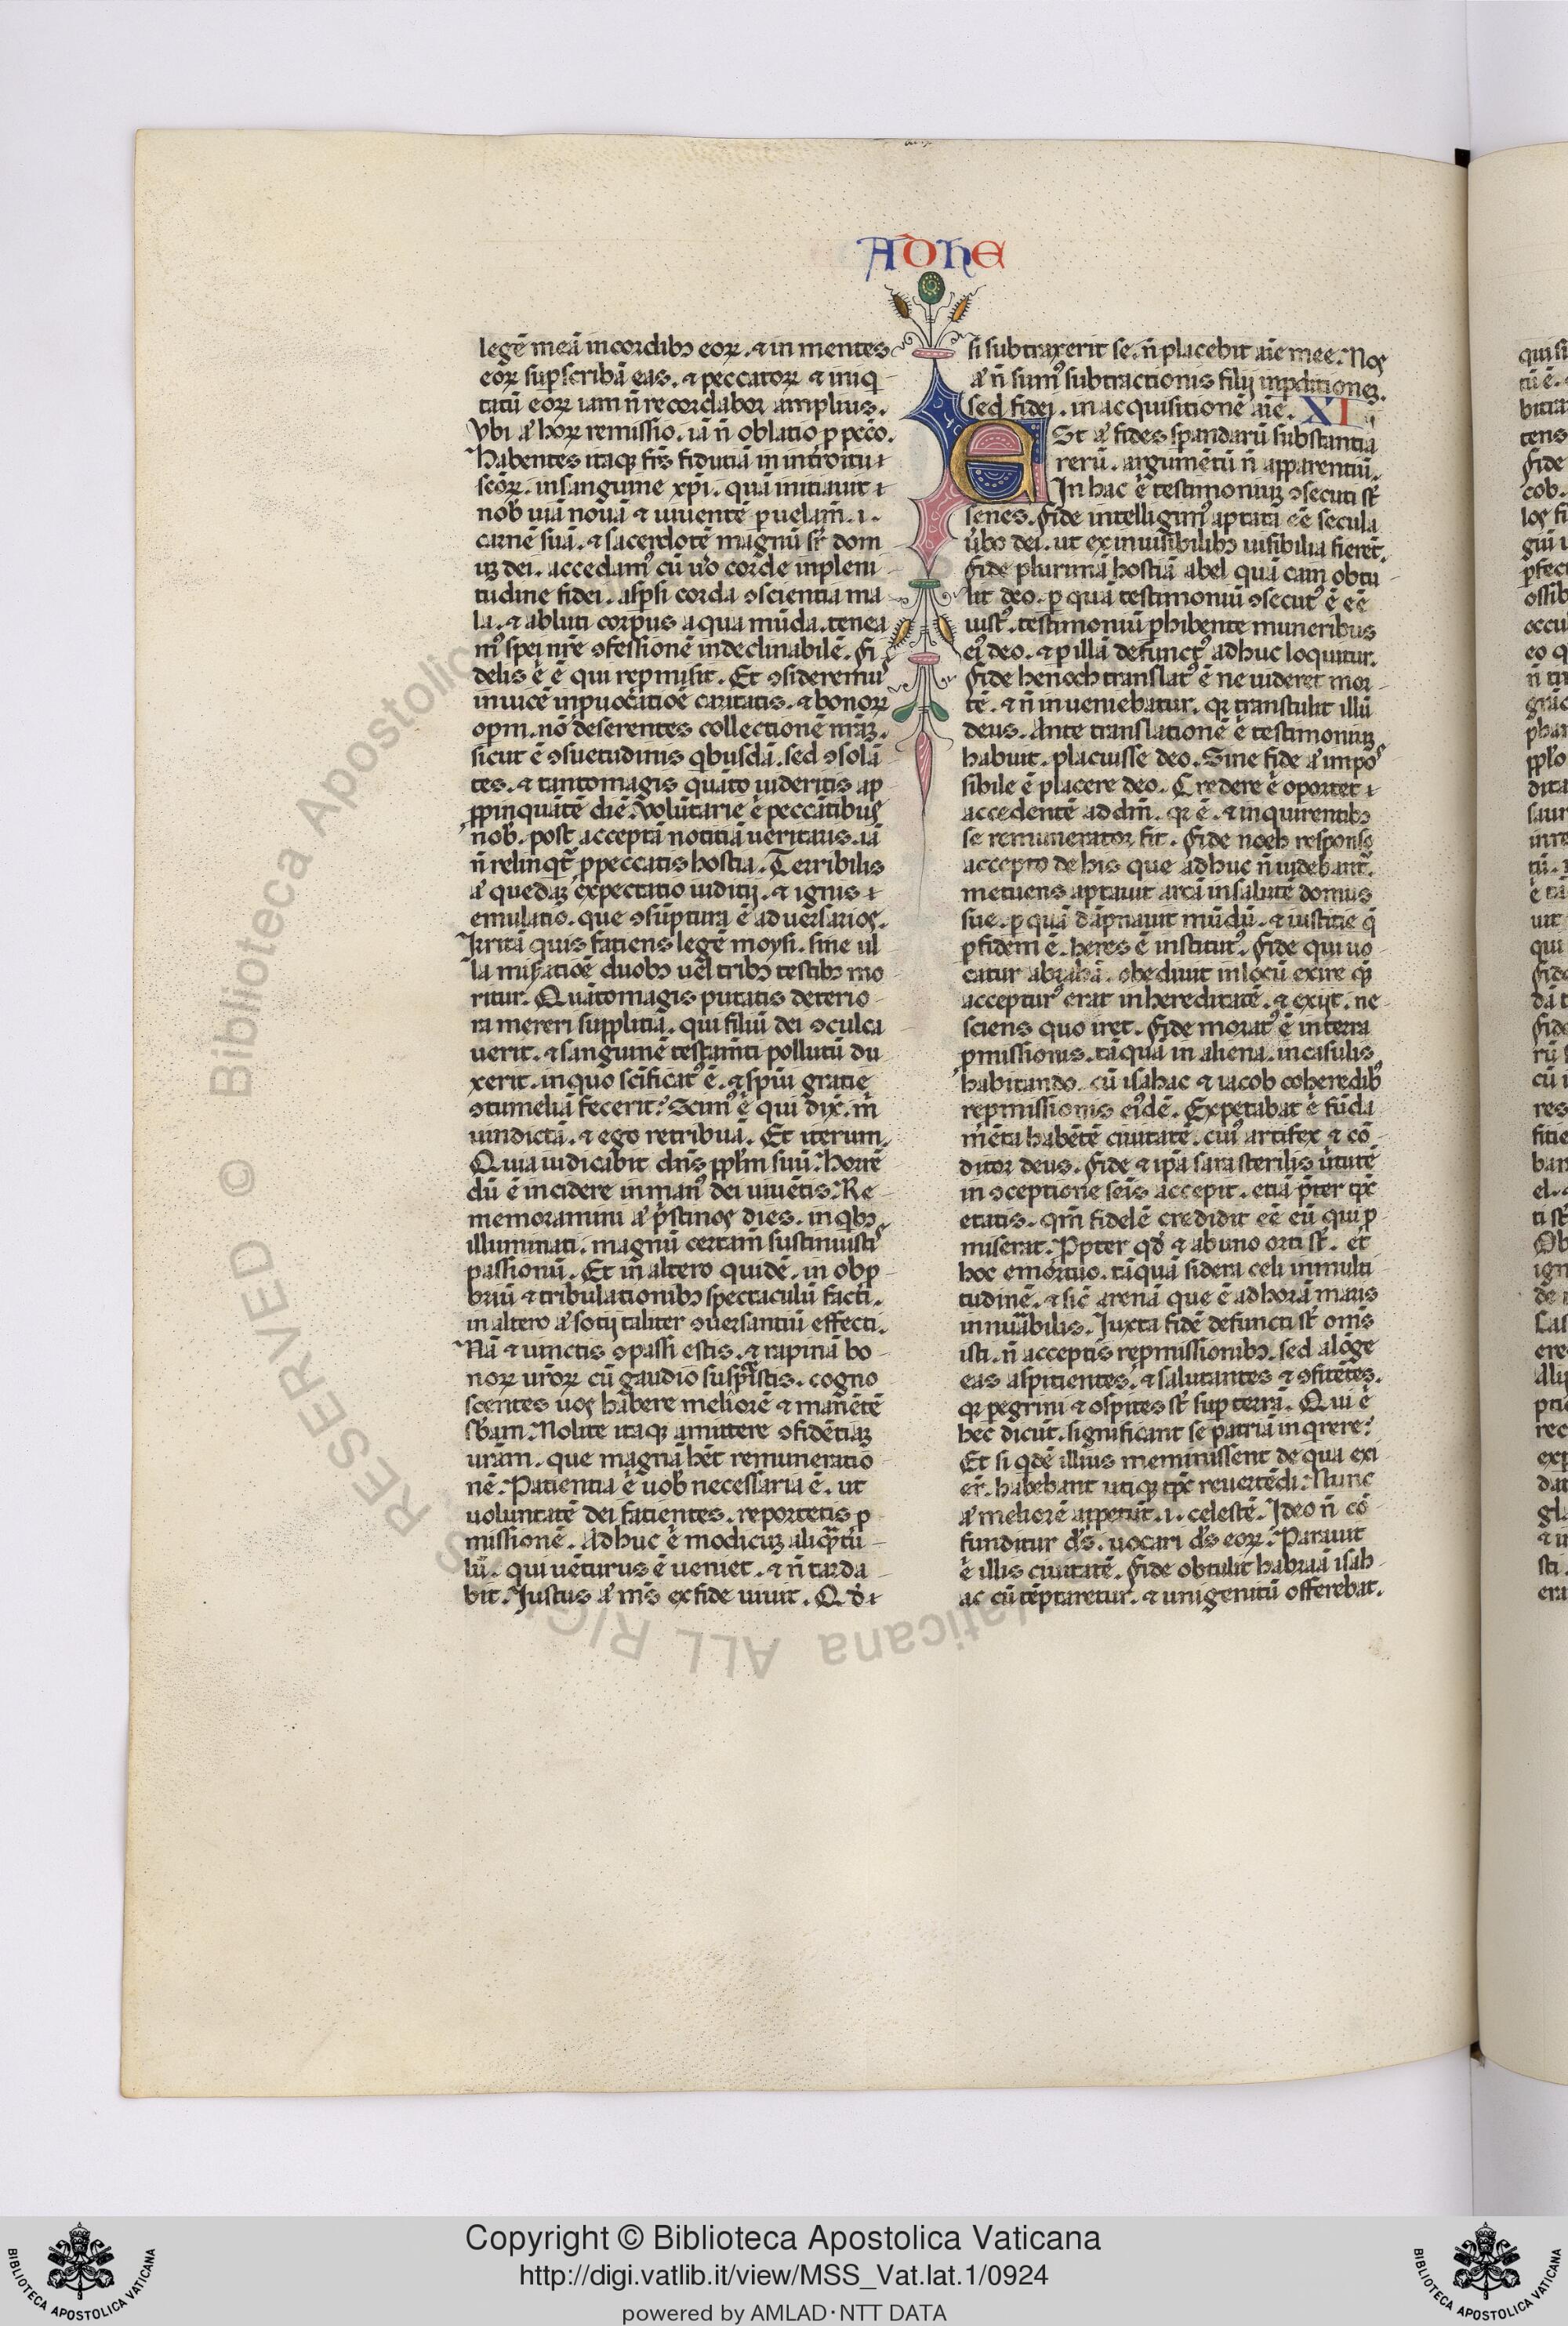 ADHE
legē meā in cordibꝫ eoꝝ. ⁊ in mentes
eoꝝ supscribā eas. ⁊ peccatoꝝ ⁊ iniq
tatū eoꝝ iam n̄ recordabor amplius.
Vbi aͥ hoꝝ remissio. iā n̄ oblatio p pcc̄o.
Habentes itaqꝫ frs̄ fidutiā in introitu ⁊
sc̄oꝝ. in sanguine xp̄i. quā initiauit ⁊
nob̄ uiā nouā ⁊ uiuentē p uelam̄. .i.
carnē suā. ⁊ sacerdotē magnū sr̄ dom
uꝫ dei. accedamꝰ cū uͦo corde in pleni
tudine fidei. asp̄si corda ꝯscientia ma
la. ⁊ abluti corpus aqua mūda. tenea
mꝰ spei nr̄e ꝯfessionē indeclinabilē. Fi
delis ē ē qui repmisit. Et ꝯsideremꝰ
inuicē in puocatioē caritatis. ⁊ bonoꝝ
opm. nō deserentes collectionē nr̄aꝫ.
sicut ē ꝯsuetudinis qbusdā. sed ꝯsolā
tes. ⁊ tantomagis quāto uideritis ap
ppinquātē diē. Volūtarie ē peccātibuꝰ
nob̄. post acceptā notitiā ueritatis. iā
n̄ relinqt̄ p peccatis hostia. Terribilis
aͥ quedaꝫ expectatio iuditij. ⁊ ignis ⁊
emulatio. que ꝯsūptura ē aduersarios.
Irritā quis fatiens legē moysi. sine ul
la mis̄atioē duobꝫ uel̄ tribꝫ testibꝫ mo
ritur. Quātomagis putatis deterio
ra mereri supplitiā. qui filiū dei ꝯculca
uerit. ⁊ sanguinē testam̄ti pollutū du
xerit. in quo sc̄ificatꝰ ē. ⁊ spiū gratie
ꝯtumeliā fecerit? Scimꝰ ē qui dix̄. m̄
uindictā. ⁊ ego retribuā. Et iterum.
Quia iudicabit dn̄s ppl̄m suū. Horrē
dū ē incidere in manꝰ dei uiuētis. Re
memoramini aͥ p̄stinos dies. in qbꝫ
illuminati. magnū certam̄ sustinuistꝭ
passionū. Et in altero quidē. in obp
briū ⁊ tribulationibꝫ spectaculū facti.
in altero aͥ sotij taliter ꝯuersantiū effecti.
Nā ⁊ uinctis ꝯpassi estis. ⁊ rapinā bo
noꝝ ur̄oꝝ cū gaudio suspistis. cogno
scentes uos habere meliorē ⁊ manētē
sb̄am. Nolite itaqꝫ amittere ꝯfidētiaꝫ
ur̄am. que magnā hēt remuneratio
nē. Patientia ē uob̄ necessaria ē. ut
uoluntatē dei fatientes. reportetis p
missionē. Adhuc ē modicuꝫ aliqͣtū
lū. qui uēturus ē ueniet. ⁊ n̄ tarda
bit. Justus aͥ ms̄ ex fide uiuit. Qd̄ ⁊
si subtraxerit se. n̄ placebit aīe mee. Nos
aͥ n̄ sumꝰ subtractionis filij in pditioneꝫ.
sed fidei. in acquisitionē aīe. XI
ESt aͥ fides sperandarū substantia
rerū. argumētū n̄ apparentiū.
In hac ē testimoniuꝫ ꝯsecuti st̄
senes. Fide intelligimꝰ aptata eē secula
ūbo dei. ut ex inuisibilibꝫ uisibilia fierēt.
Fide plurimā hostiā abel quā cain obtu
lit deo. p quā testimoniū ꝯsecutꝰ ē eē
iustꝰ. testimoniū phibente muneribus
eiꝰ deo. ⁊ p illā defunctꝰ adhuc loquitur.
Fide henoch translatꝰ ē ne uideret mor
tē. ⁊ n̄ inueniebatur. qꝛ transtulit illū
deus. Ante translationē ē testimoniuꝫ
habuit. placuisse deo. Sine fide aͥ impoꝰ
sibile ē placere deo. Credere ē oportet ⁊
accedentē ad dm̄. qꝛ ē. ⁊ inquirentibꝫ
se remunerator fit. Fide noeh responso
accepto de his que adhuc n̄ uidebant̄.
metuens aptauit arcā in salutē domus
sue. p quā dāpnauit mūdū. ⁊ iustitie q̄
p fidem ē. heres ē institutꝰ. Fide qui uo
catur abrahā. obediuit in locū exire quē
accepturꝰ erat in hereditatē. ⁊ exijt. ne
sciens quo iret. Fide moratꝰ ē in terra
pmissionis. tāquā in aliena. in casulis
habitando. cū isahac ⁊ iacob coheredibꝰ
repmissionis eiꝰdē. Expetabat ē fūda
mēta habētē ciuitatē. cuiꝰ artifex ⁊ cō
ditor deus. Fide ⁊ ipā sara sterilis ūtutē
in ꝯceptione seīs accepit. etiā p̄ter tp̄s
etatis. qm̄ fidelē credidit eē eū qui p
miserat. Ppter qd̄ ⁊ ab uno orti st̄. et
hoc emortuo. tāquā sidera celi in multi
tudinē. ⁊ sic̄ arenā que ē ad horā maris
innūabilis. Juxta fidē defuncti st̄ oms̄
isti. n̄ acceptis repmissionibꝫ. sed alōge
eas aspitientes. ⁊ salutantes ⁊ ꝯfitētes.
qꝛ pegrini ⁊ ospites st̄ sup terrā. Qui ē
hec dicūt. significant se patriā inqrere.
Et si qdē illius meminissent de qua exi
er̄. habebant utiqꝫ tp̄s reuertēdi. Nunc
aͥ meliorē appetūt. .i. celestē. Ideo n̄ cō
funditur ds̄. uocari ds̄ eoꝝ. Parauit
ē illis ciuitatē. Fide obtulit habraā isah
ac cū tēptaretur. ⁊ unigenitū offerebat.
© Biblioteca Apostolica Vaticana ALL RIGHTS RESERVED
Copyright © Biblioteca Apostolica Vaticana
http://digi.vatlib.it/view/MSS_Vat.lat.1/0924
powered by AMLAD·NTT DATA
BIBLIOTECA APOSTOLICA VATICANA
BIBLIOTECA APOSTOLICA VATICANA